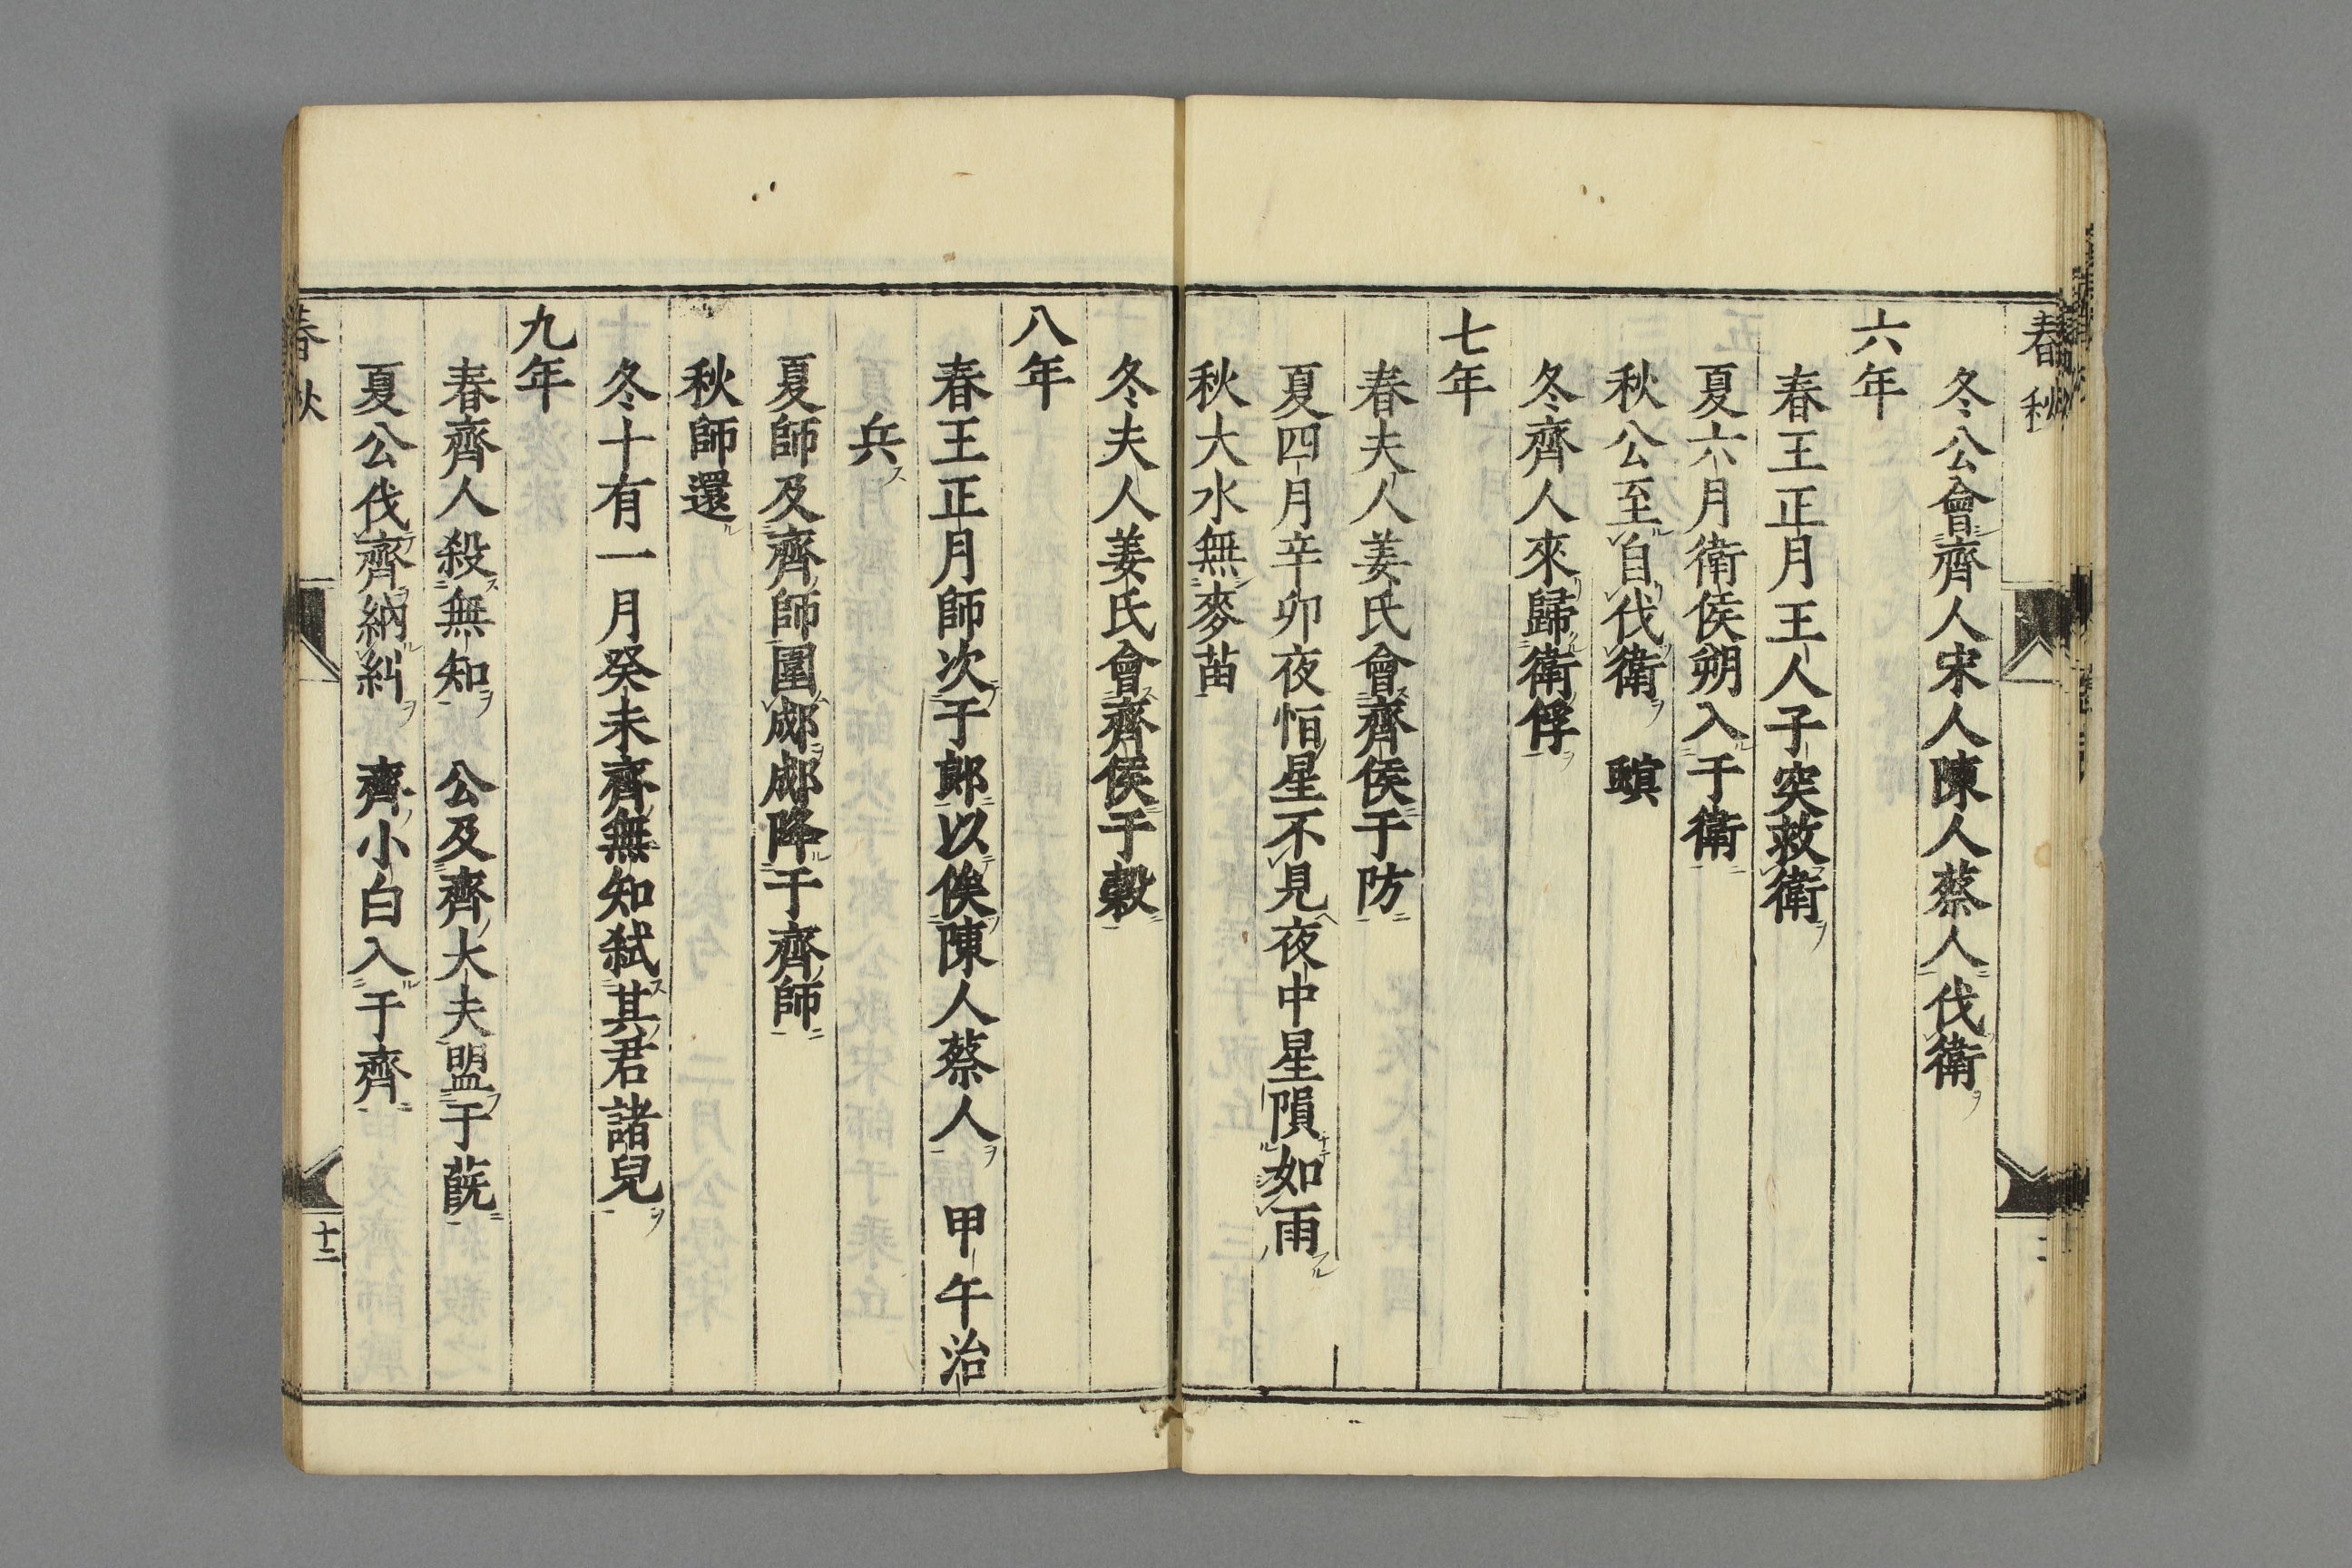 春秋
冬公會齊人宋人陳人蔡人伐衛
六年
春王正月王人子突救衛
夏六月衛侯朔入于衛
秋公至自伐衛 螟
冬齊人來歸衛俘
七年
春夫人姜氏會齊侯于防
夏四月辛卯夜恒星不見夜中星隕如雨
秋大水無麥苗
冬夫人姜氏會齊侯于榖
八年
春王正月師次于郎以俟陳人蔡人 甲午治
兵
夏師及齊師圍郕郕降于齊師
秋師還
冬十有一月癸未齊無知弑其君諸兒
九年
春齊人殺無知 公及齊大夫盟于蔇
夏公伐齊納糾 齊小白入于齊
春秋
十二